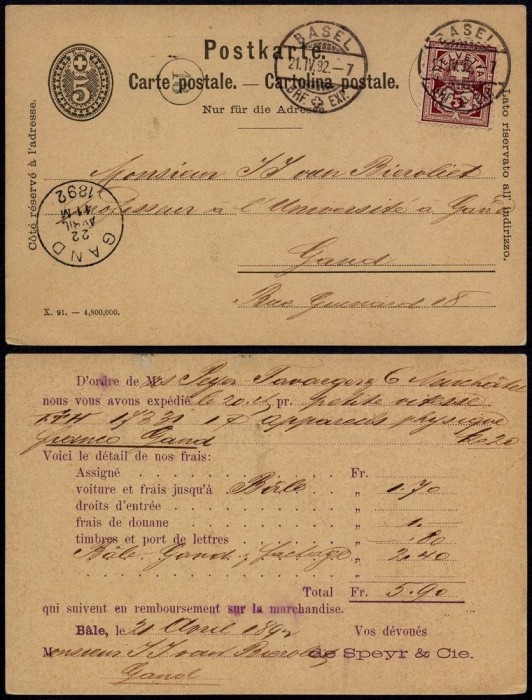 Postkarte.
Carte postale. — Cartolina postale.
Nur für die Adresse.
5
BASEL
21.IV.92.–7
BRF. EXP.
BASEL
HELVETIA
5
Côté réservé à l'adresse.
Lato riservato all'indirizzo.
Monsieur JJ van Bieroliet
Professeur à l'Université à Gand
Gand
Rue Guinard 18
GAND
22
AVRIL
11-M
1892
X. 91. — 4,800,000.
D'ordre de M
nous vous avons expédié le 20. pr. petite vitesse
17 appareils physique
franco Gand
Voici le détail de nos frais:
Assigné Fr.
voiture et frais jusqu'à Bâle „ 1.70
droits d'entrée „
frais de douane „ 1.
timbres et port de lettres „ .80
Bâle-Gand, factage „ 2.40
„
Total Fr. 5.90
qui suivent en remboursement sur la marchandise.
Bâle, le 21 April 1892 Vos dévoués
Monsieur JJ van Bieroliet de Speyr & Cie.
Gand